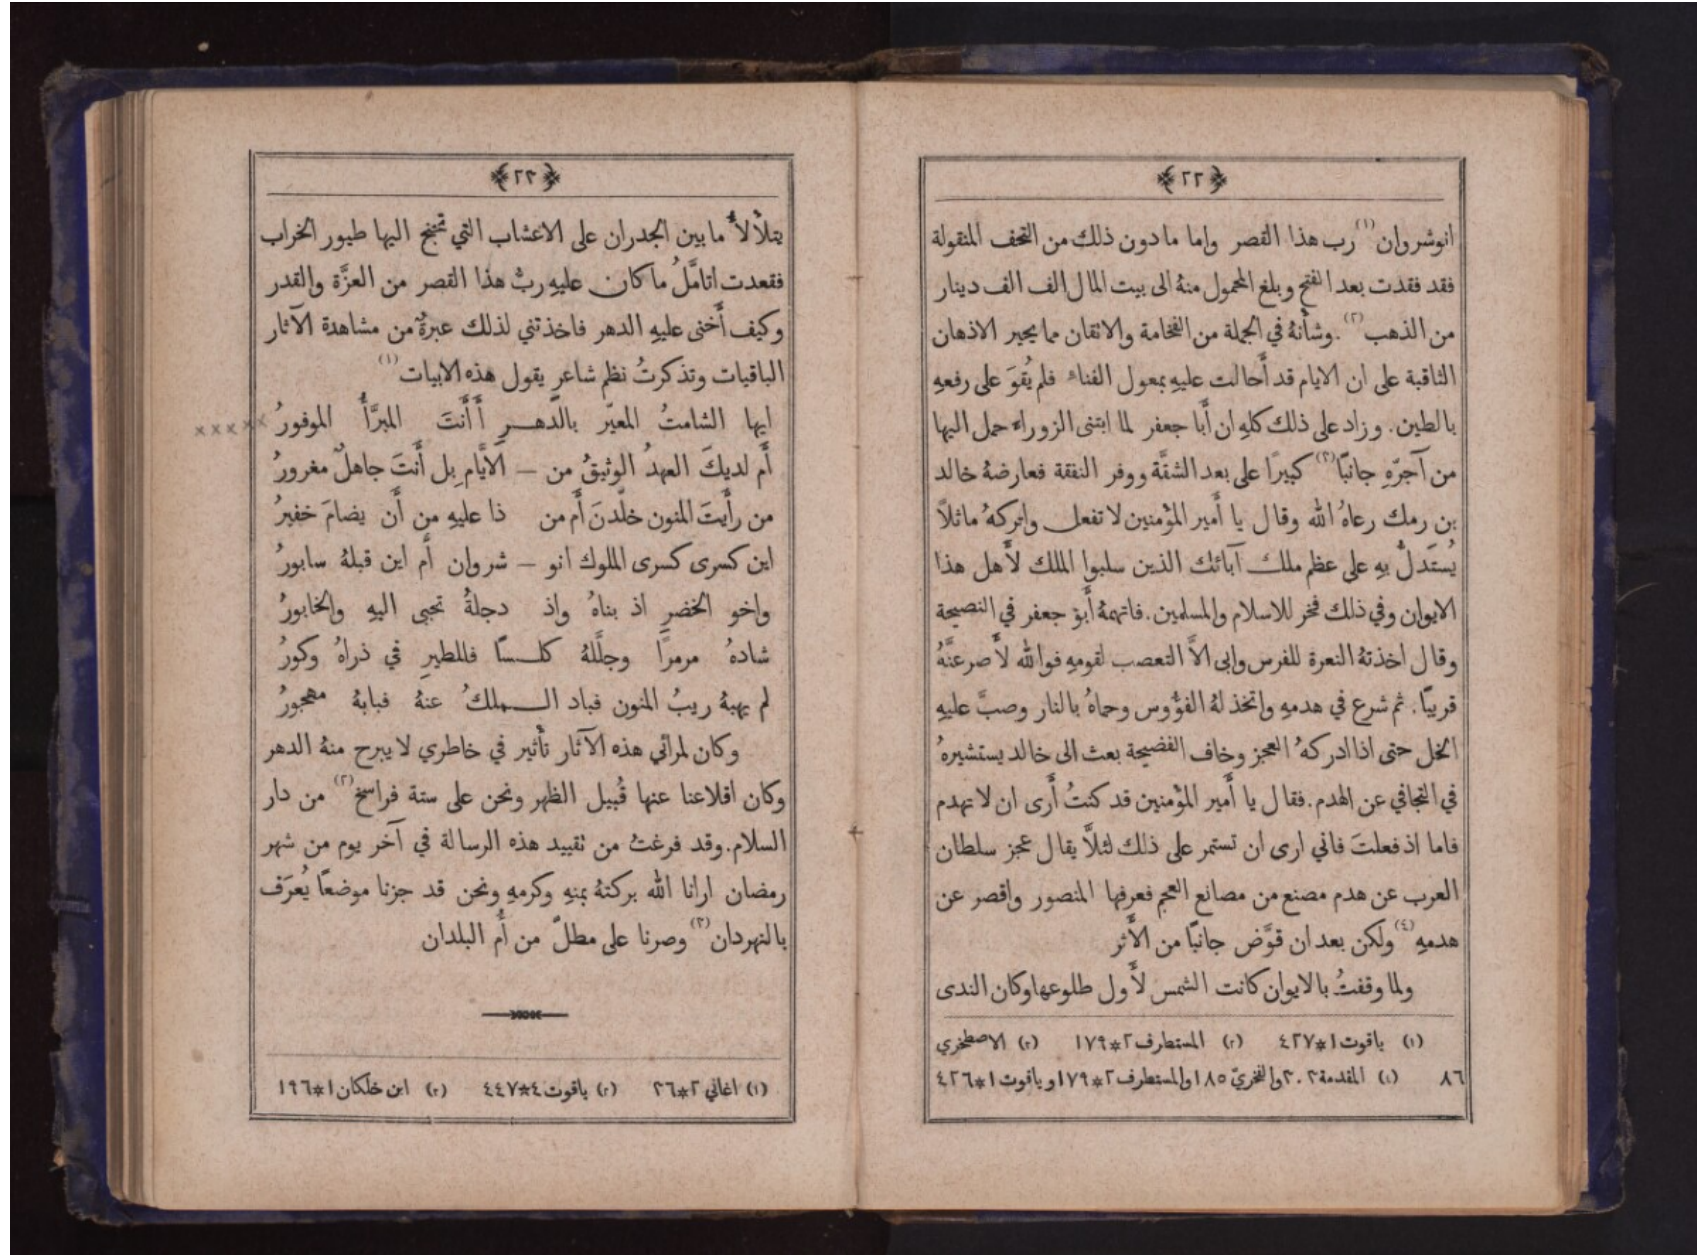 ﴿٢٢﴾
انوشروان(١) رب هذا القصر واما ما دون ذلك من التحف المنقولة
فقد فقدت بعد الفتح وبلغ المحمول منهُ الى بيت المال الف الف دينار
من الذهب(٢). وشأنهُ في الجملة من الفخامة والاتقان مما يحير الاذهان
الثاقبة على ان الايام قد أَحالت عليهِ بمعول الفناء فلم يُقوَ على رفعهِ
بالطين. وزاد على ذلك كلهِ ان أَبا جعفر لما ابتنى الزوراء حمل اليها
من آجرّهِ جانبًا(٣) كبيرًا على بعد الشقَّة ووفر النفقة فعارضهُ خالد
بن رمك رعاهُ الله وقال يا أَمير المؤمنين لا تفعل واتركهُ ماثلاً
يُستَدلُّ بهِ على عظم ملك آبائك الذين سلبوا الملك لأَهل هذا
الايوان وفي ذلك فخر للاسلام والمسلمين. فاتهمهُ أَبو جعفر في النصيحة
وقال اخذتهُ النعرة للفرس وابى الاَّ التعصب لقومهِ فوالله لأَصرعنَّهُ
قريبًا. ثم شرع في هدمهِ واتخذ لهُ الفؤوس وحماهُ بالنار وصبَّ عليهِ
الخل حتى اذا ادركهُ العجز وخاف الفضيحة بعث الى خالد يستشيرهُ
في التجافي عن الهدم. فقال يا أَمير المؤمنين قد كنتُ أَرى ان لا تهدم
فاما اذ فعلتَ فاني ارى ان تستمر على ذلك لئلاَّ يقال عجز سلطان
العرب عن هدم مصنع من مصانع العجم فعرفها المنصور واقصر عن
هدمهِ(٤) ولكن بعد ان قوَّض جانبًا من الأَثر
ولما وقفتُ بالايوان كانت الشمس لأَول طلوعها وكان الندى
(١) ياقوت ١*٤٢٧ (٢) المستطرف ٢*١٧٩ (٣) الاصطخري
٨٦ (٤) المقدمة ٣٠٢ والفخريّ ١٨٥ والمستطرف ٢*١٧٩ وياقوت ١*٤٢٦
﴿٢٣﴾
يتلأْلأُ ما بين الجدران على الاعشاب التي تجنح اليها طيور الخراب
فقعدت اتامَّلُ ما كان عليهِ ربُّ هذا القصر من العزَّة والقدر
وكيف أَخنى عليهِ الدهر فاخذتني لذلك عبرةٌ من مشاهدة الآثار
الباقيات وتذكرتُ نظم شاعرٍ يقول هذه الابيات(١)
ايها الشامتُ المعيّر بالدَّهـر أَأَنتَ المبرَّأُ الموفورُ
أَم لديكَ العهدُ الوثيقُ من – الأَيَّامِ بل أَنتَ جاهلٌ مغرورُ
من رأَيتَ المنون خلَّدنَ أَم من ذا عليهِ من أَن يضامَ خفيرُ
اين كسرى كسرى الملوك انو – شروان أَم اين قبلهُ سابورُ
واخو الخضرِ اذ بناهُ واذ دجلةُ تجبى اليهِ والخابورُ
شادهُ مرمرًا وجلَّلهُ كلـسًا فللطيرِ في ذراهُ وكورُ
لم يهبهُ ريبُ المنون فباد الـملكُ عنهُ فبابهُ مهجورُ
وكان لمرائي هذه الآثار تأثير في خاطري لا يبرح منهُ الدهر
وكان اقلاعنا عنها قُبيل الظهر ونحن على ستة فراسخ(٢) من دار
السلام. وقد فرغتُ من تقييد هذه الرسالة في آخر يوم من شهر
رمضان ارانا الله بركتهُ بمنهِ وكرمهِ ونحن قد جزنا موضعًا يُعرَف
بالنهردان(٣) وصرنا على مطلّ من أُم البلدان
(١) اغاني ٢*٣٦ (٢) ياقوت ٤*٤٤٧ (٣) ابن خلكان ١*١٩٦